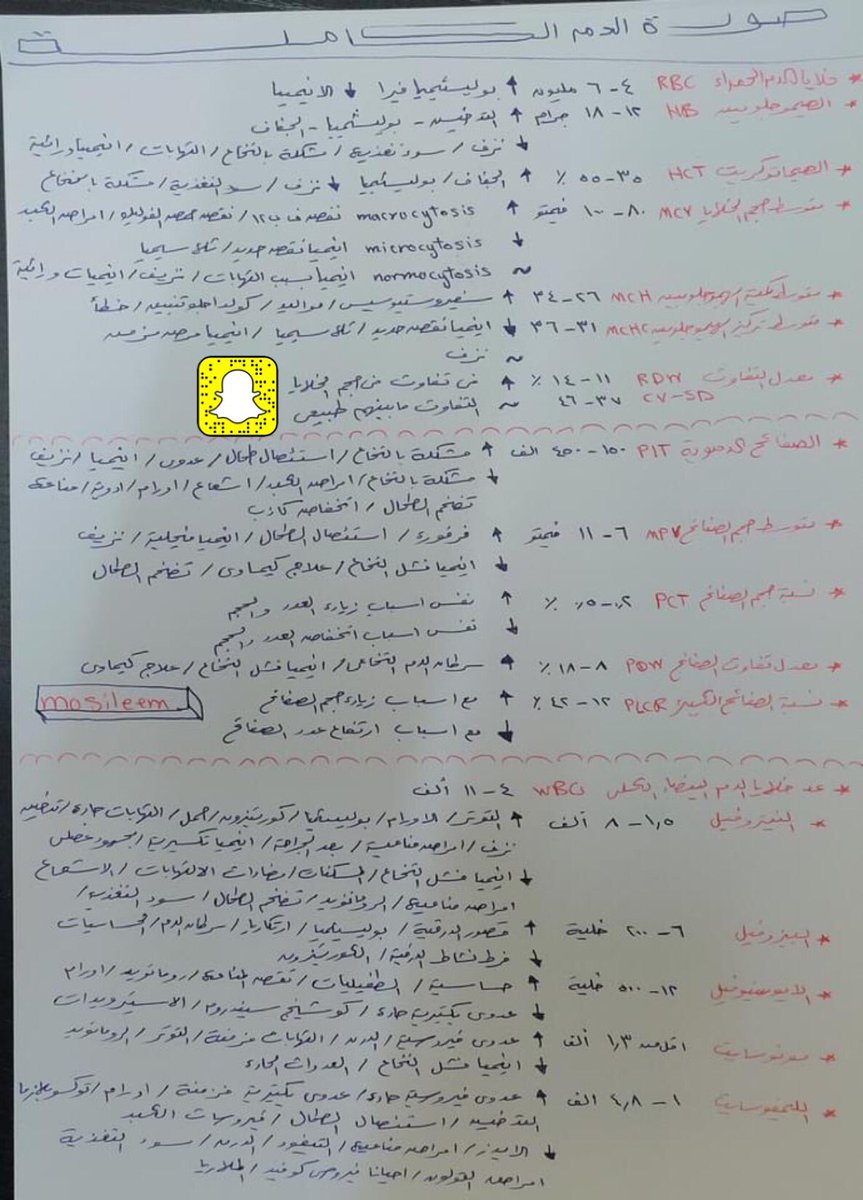 صورة الدم الكاملة
* خلايا الدم الحمراء RBC ٤-٦ مليون ↑ بوليسثيميا فيرا ↓ الانيميا
* الهيموجلوبين HB ١٢-١٨ جرام ↑ التدخين - بوليسثميا - الجفاف
↓ نزف / سوء تغذية / مشكلة بالنخاع / التهابات / انيميا وراثية
* الهيماتوكريت HCT ٣٥-٥٥ ٪ ↑ الجفاف / بوليسثيميا ↓ نزف / سوء التغذية / مشكلة بالنخاع
* متوسط حجم الخلايا MCV ٨٠-١٠٠ فيمتو ↑ macrocytosis نقص فاب١٢ / نقص حمض الفوليك / امراض الكبد
↓ microcytosis انيميا نقص حديد / ثلاسيميا
~ normocytosis انيميا بسبب التهابات / نزيف / انيميات وراثية
* متوسط كمية الهيموجلوبين MCH ٢٦-٣٤ ↑ سفيروسيتوسيس / مواليد / كولد اجلوتنيين / خطأ
* متوسط تركيز الهيموجلوبين MCHC ٣١-٣٦ ↓ انيميا نقص حديد / ثلاسيميا / انيميا مرض مزمن
~ نزف
* معدل التفاوت RDW ١١-١٤ ٪ ↑ في تفاوت في حجم الخلايا
CV-SD ٣٧-٤٦ ~ التفاوت مابينهم طبيعي
* الصفائح الدموية PlT ١٥٠-٤٥٠ الف ↑ مشكلة بالنخاع / استئصال طحال / عدوى / انيميا / نزيف
↓ مشكلة بالنخاع / امراض الكبد / اشعاع / اورام / ادوية / مناعة
تضخم الطحال / انخفاض كاذب
* متوسط حجم الصفائح MPV ٦-١١ فيمتو ↑ فرفورة / استئصال الطحال / انيميا منجلية / نزيف
↓ انيميا فشل النخاع / علاج كيماوى / تضخم الطحال
* نسبة حجم الصفائح PCT ٠٫٢-٠٫٥ ٪ ↑ نفس اسباب زيادة العدد والحجم
↓ نفس اسباب انخفاض العدد والحجم
* معدل تفاوت الصفائح PDW ٨-١٨ ٪ ↑ سرطان الدم النخاعى / انيميا فشل النخاع / علاج كيماوى
* نسبة الصفائح الكبيرة PLCR ١٢-٤٢ ٪ ↑ مع اسباب زيادة حجم الصفائح
mosileem
↓ مع اسباب ارتفاع عدد الصفائح
* عد خلايا الدم البيضاء الكلى WBC ٤-١١ ألف
* النيتروفيل ١٫٥-٨ ألف ↑ التوتر / الاورام / بوليسيثيميا / كورتيزون / حمل / التهابات حادة / تدخين
نزف / امراض مناعية / بعد الجراحة / انيميا تكسيرية / مجهود عضلى
↓ انيميا فشل النخاع / المسكنات / مضادات الالتهابات / الاشعاع
امراض مناعية / الروماتويد / تضخم الطحال / سوء التغذية /
* البيزوفيل ٦-٢٠٠ خلية ↑ قصور الدرقية / بوليسيثيميا / ارتكاريا / سرطان الدم / الحساسيات
↓ فرط نشاط الدرقية / الكورتيزون
* الايوسينوفيل ١٢-٥٠٠ خلية ↑ حساسية / الطفيليات / نقص المناعة / روماتويد / اورام
↓ عدوى بكتيرية حادة / كوشينج سيندروم / الاستيرويدات
* مونوسايت اقل من ١٫٣ ألف ↑ عدوى فيروسية / الدرن / التهابات مزمنة / التوتر / الروماتويد
↓ انيميا فشل النخاع / العدوات الحادة
* الليمفوسايت ١-٤٫٨ الف ↑ عدوى فيروسية حادة / عدوى بكتيرية مزمنة / اورام / توكسوبلازما
التدخين / استئصال الطحال / فيروسات الكبد
↓ الايدز / امراض مناعية / التيفود / الدرن / سوء التغذية
امراض القولون / احيانا فيروس كوفيد / الملاريا